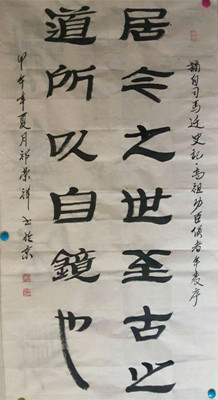 摘自司马迁史记·高祖功臣侯者年表序
居今之世至古之
道所以自鏡也
甲午年夏月祁祥书於京